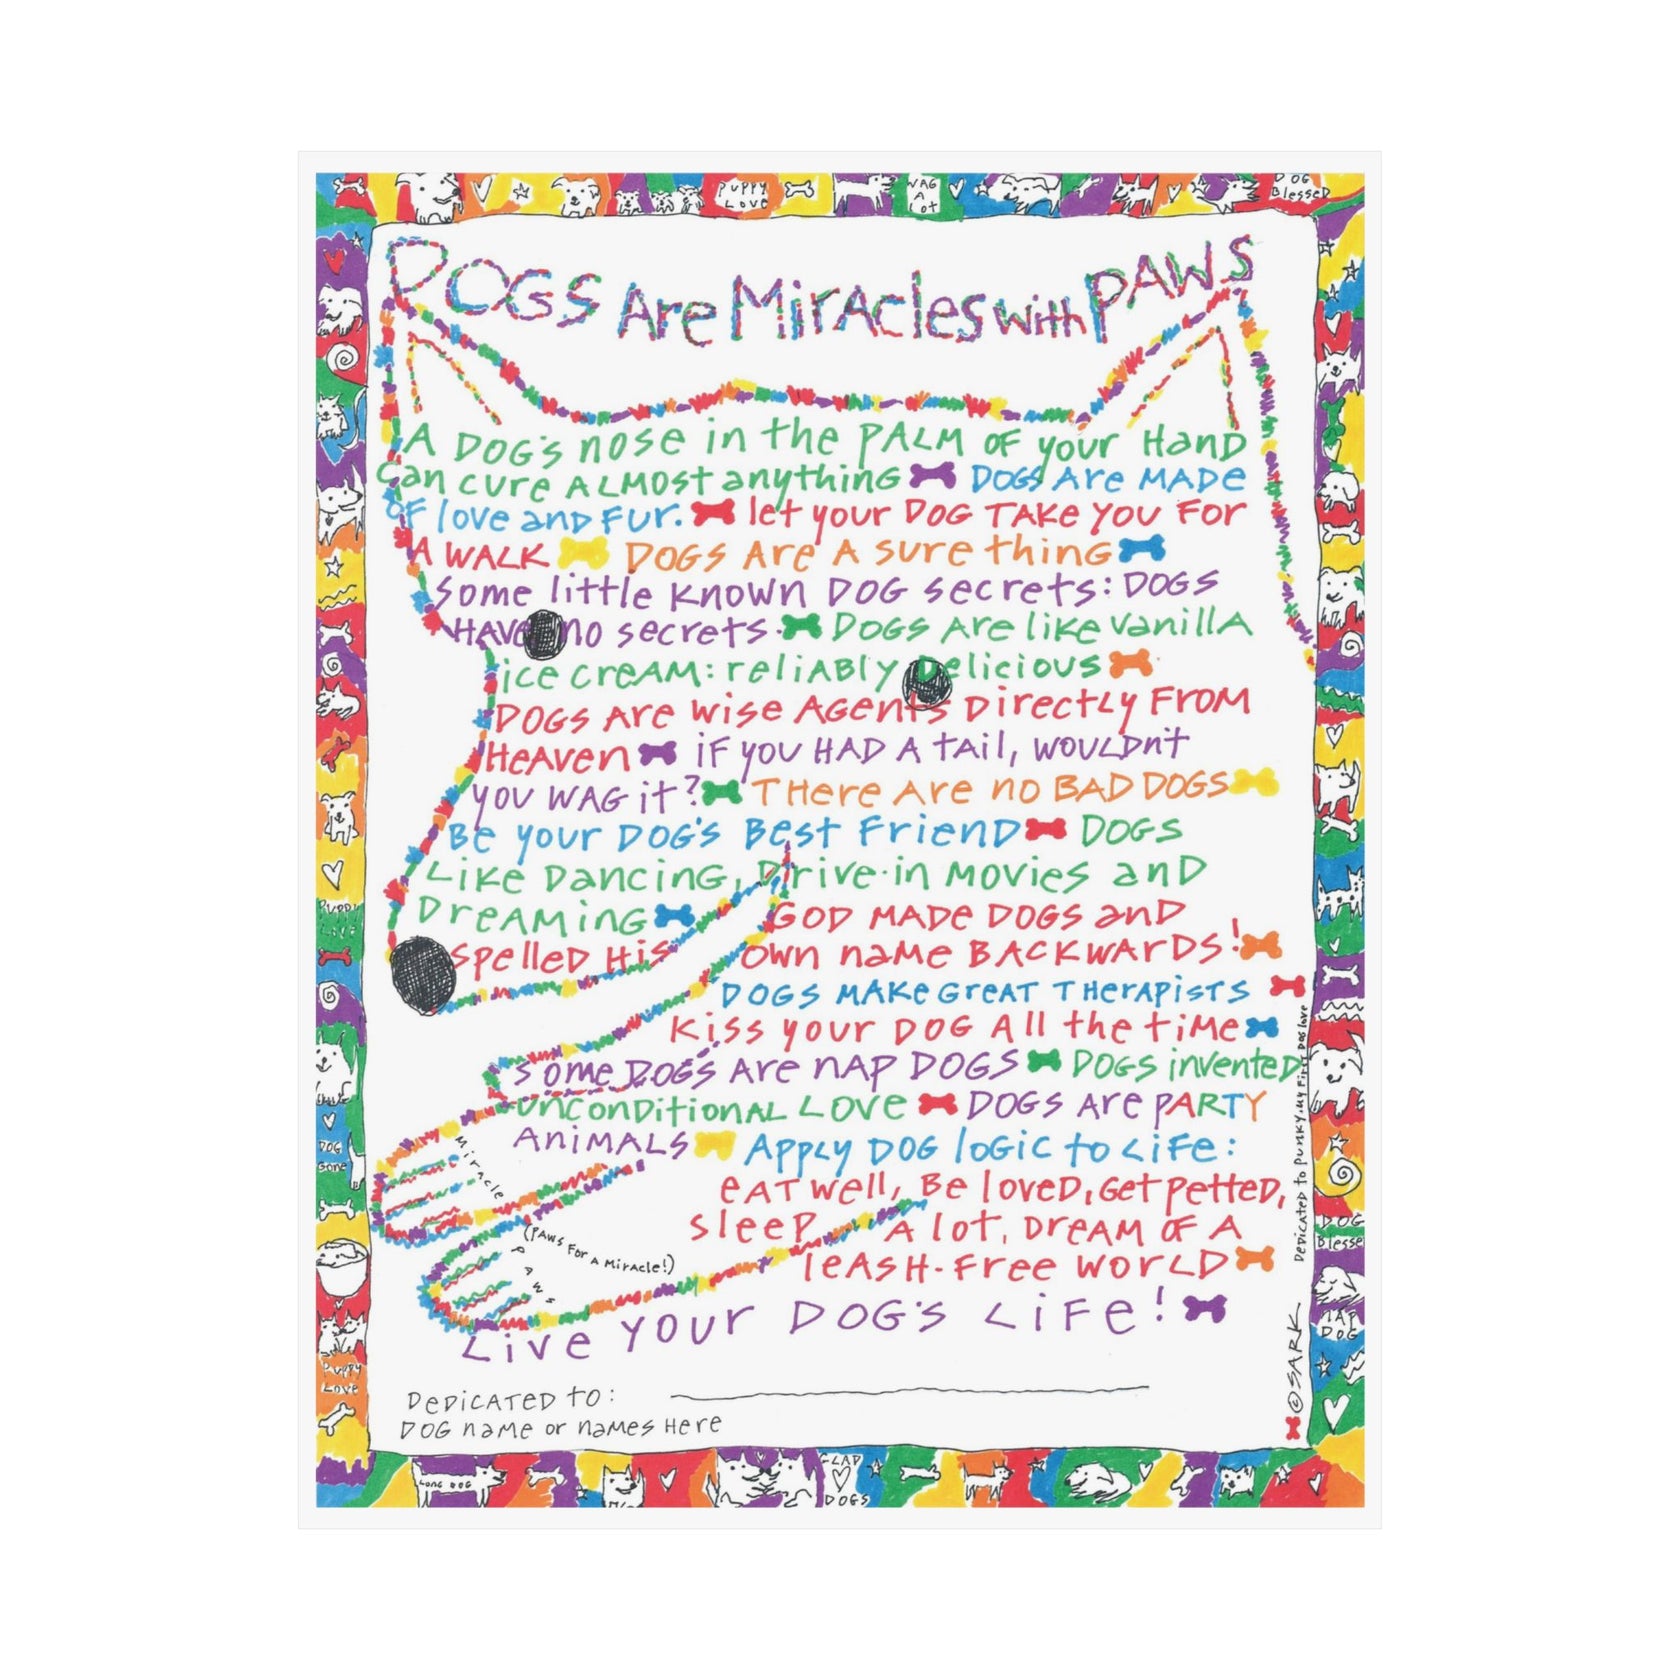 PUPPY LOVE
WAG A LOT
DOG Blessed
DOGS Are Miracles with PAWS
A DOG'S nose in the PALM OF your Hand
Can cure ALMOst anything DOGS Are MADE
OF love and Fur. let your DOG TAKE you For
A WALK DOGS Are A sure thing
Some little Known DOG secrets: DOGS
HAVE no secrets. DOGS Are like vanilla
ice cream: reliably Delicious
DOGS Are wise Agents Directly From
Heaven if you HAD A tail, wouldn't
you WAG it? There Are no BAD DOGS
Be your DOG'S Best Friend DOGS
Like Dancing, Drive-in Movies and
Dreaming GOD MADE DOGS and
spelled His own name BACKWARDS!
DOGS MAKE Great Therapists
Kiss your DOG All the time
Some DOGS Are nAP DOGS DOGS invented
unconditional Love DOGS Are PARTY
Animals Apply DOG logic to Life:
eat well, Be loved, Get petted,
sleep A lot, Dream OF A
leash-Free World
Live Your DOG'S Life!
Miracle
PAWS
(PAWS For A Miracle!)
Dedicated to: 
DOG name or names Here
Dedicated to Punky. My First Dog love
©SARK
PUPPY LOVE
DOG Gone
PUPPY LOVE
DOG Blessed
NAP DOG
LONG DOG
GLAD DOGS